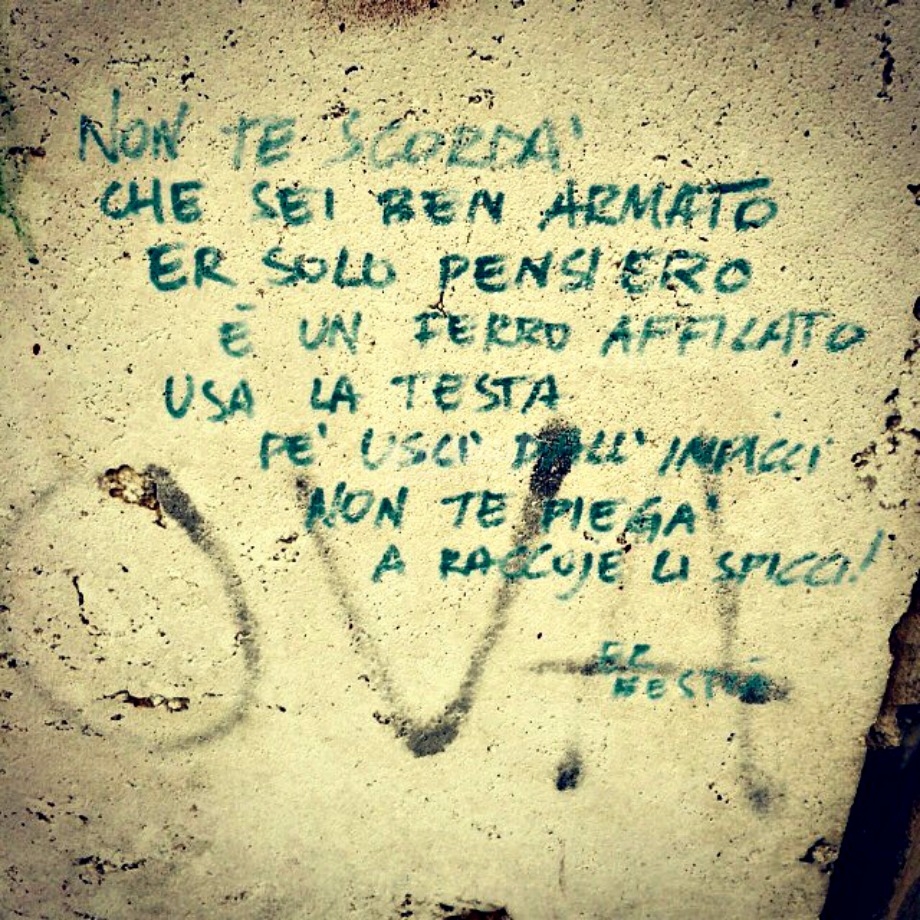 NON TE SCORDA'
CHE SEI BEN ARMATO
ER SOLO PENSIERO
È UN FERRO AFFILATO
USA LA TESTA
PE' USCI' DALL' IMPICCI
NON TE PIEGA'
A RACCOJE LI SPICCI!
ER